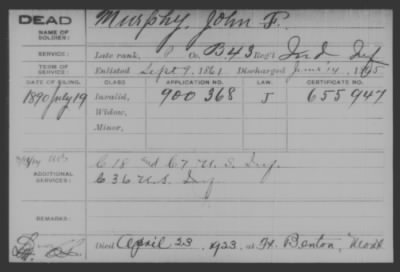 DEAD
NAME OF SOLDIER:
Murphy, John F.
SERVICE:
Late rank, P Co. B 43 Reg't Ind Inf
TERM OF SERVICE:
Enlisted Sept 9, 1861 Discharged June 14, 1865
DATE OF FILING. CLASS. APPLICATION NO. LAW. CERTIFICATE NO.
1890 July 19 Invalid, 900 368 J 655 947
Widow,
Minor,
ADDITIONAL SERVICES:
C 18 and C 7 U.S. Inf.
C 36 U.S. Inf
REMARKS:
Died April 23, 1923, at Ft. Benton, Mont